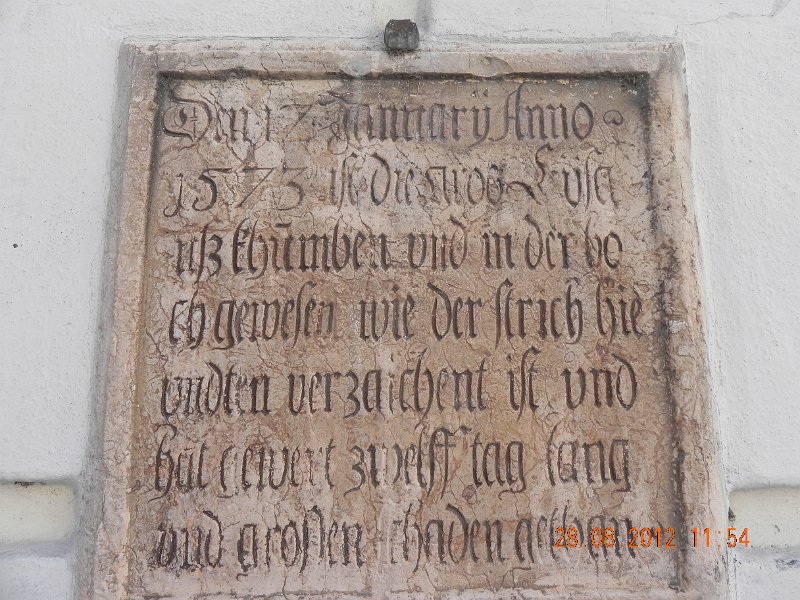 Den 17 Januarÿ Anno
1573 ist die gros Eÿsg
usz khumben und in der ho
ch gewesen wie der strich hie
undten verzaichent ist und
hat gewert zwelff tag lang
und grossen schaden gethan
28.08.2012 11:54